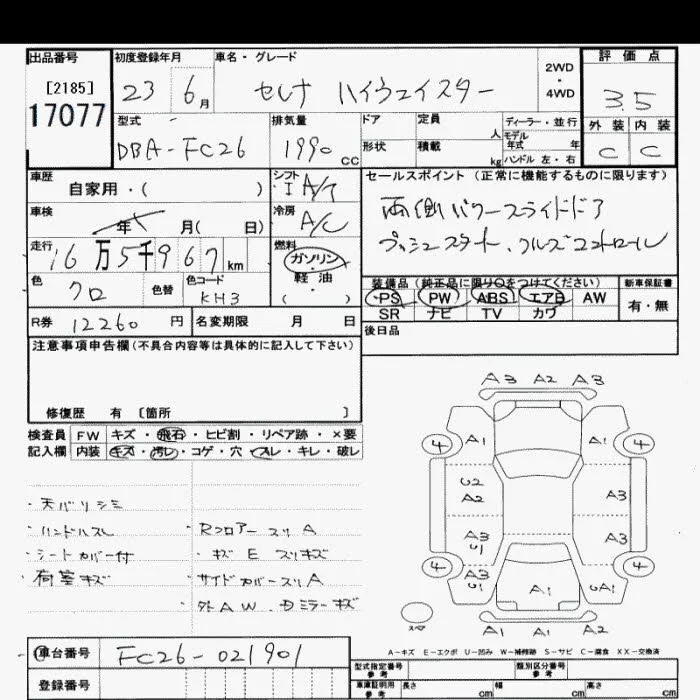 出品番号 初度登録年月 車名・グレード 評価点
[2185] 23 6月 セレナ ハイウェイスター 2WD・4WD 3.5
17077 外装 内装
型式 排気量 ドア 定員 人 ディーラー・並行 C C
DBA-FC26 1990 CC 形状 積載 kg モデル年式 年
ハンドル 左・右
車歴 シフト セールスポイント(正常に機能するものに限ります)
自家用・( ) I A/T 両側パワースライドドア
車検 年 月( 日) 冷房 A/C プッシュスタート、クルーズコントロール
走行 16万5千967km 燃料 ガソリン・軽油・( )
色 クロ 色替 色コード KH3
装備品(純正品に限り○をつけてください) 新車保証書
PS PW ABS エアB AW 有・無
SR ナビ TV カワ
R券 12260円 名変期限 月 日 後日品
注意事項申告欄(不具合内容等は具体的に記入して下さい)
修復歴 有 〔箇所 〕
検査員 FW キズ・飛石・ヒビ割・リペア跡・×要
記入欄 内装 キズ・汚レ・コゲ・穴・スレ・キレ・破レ
・天バリシミ
・ハンドルスレ ・Rフロアースリ A
・シートカバー付 ・キズ E スリキズ
荷室キズ ・サイドカバースリ A
・外AW. Dミラーキズ
A3 A2 A3
4 A1 A1 4
U2
A2 A3
A3
U1 A3
4 A3
U1 A1 UA1 4
スペア A1 A1 A2
A-キズ E-エクボ U-凹み W-補修跡 S-サビ C-腐食 XX-交換済
車台番号 FC26-021901
登録番号
型式指定番号 参考 類別区分番号 参考
車庫証明用 参考 長さ cm 幅 cm 高さ cm